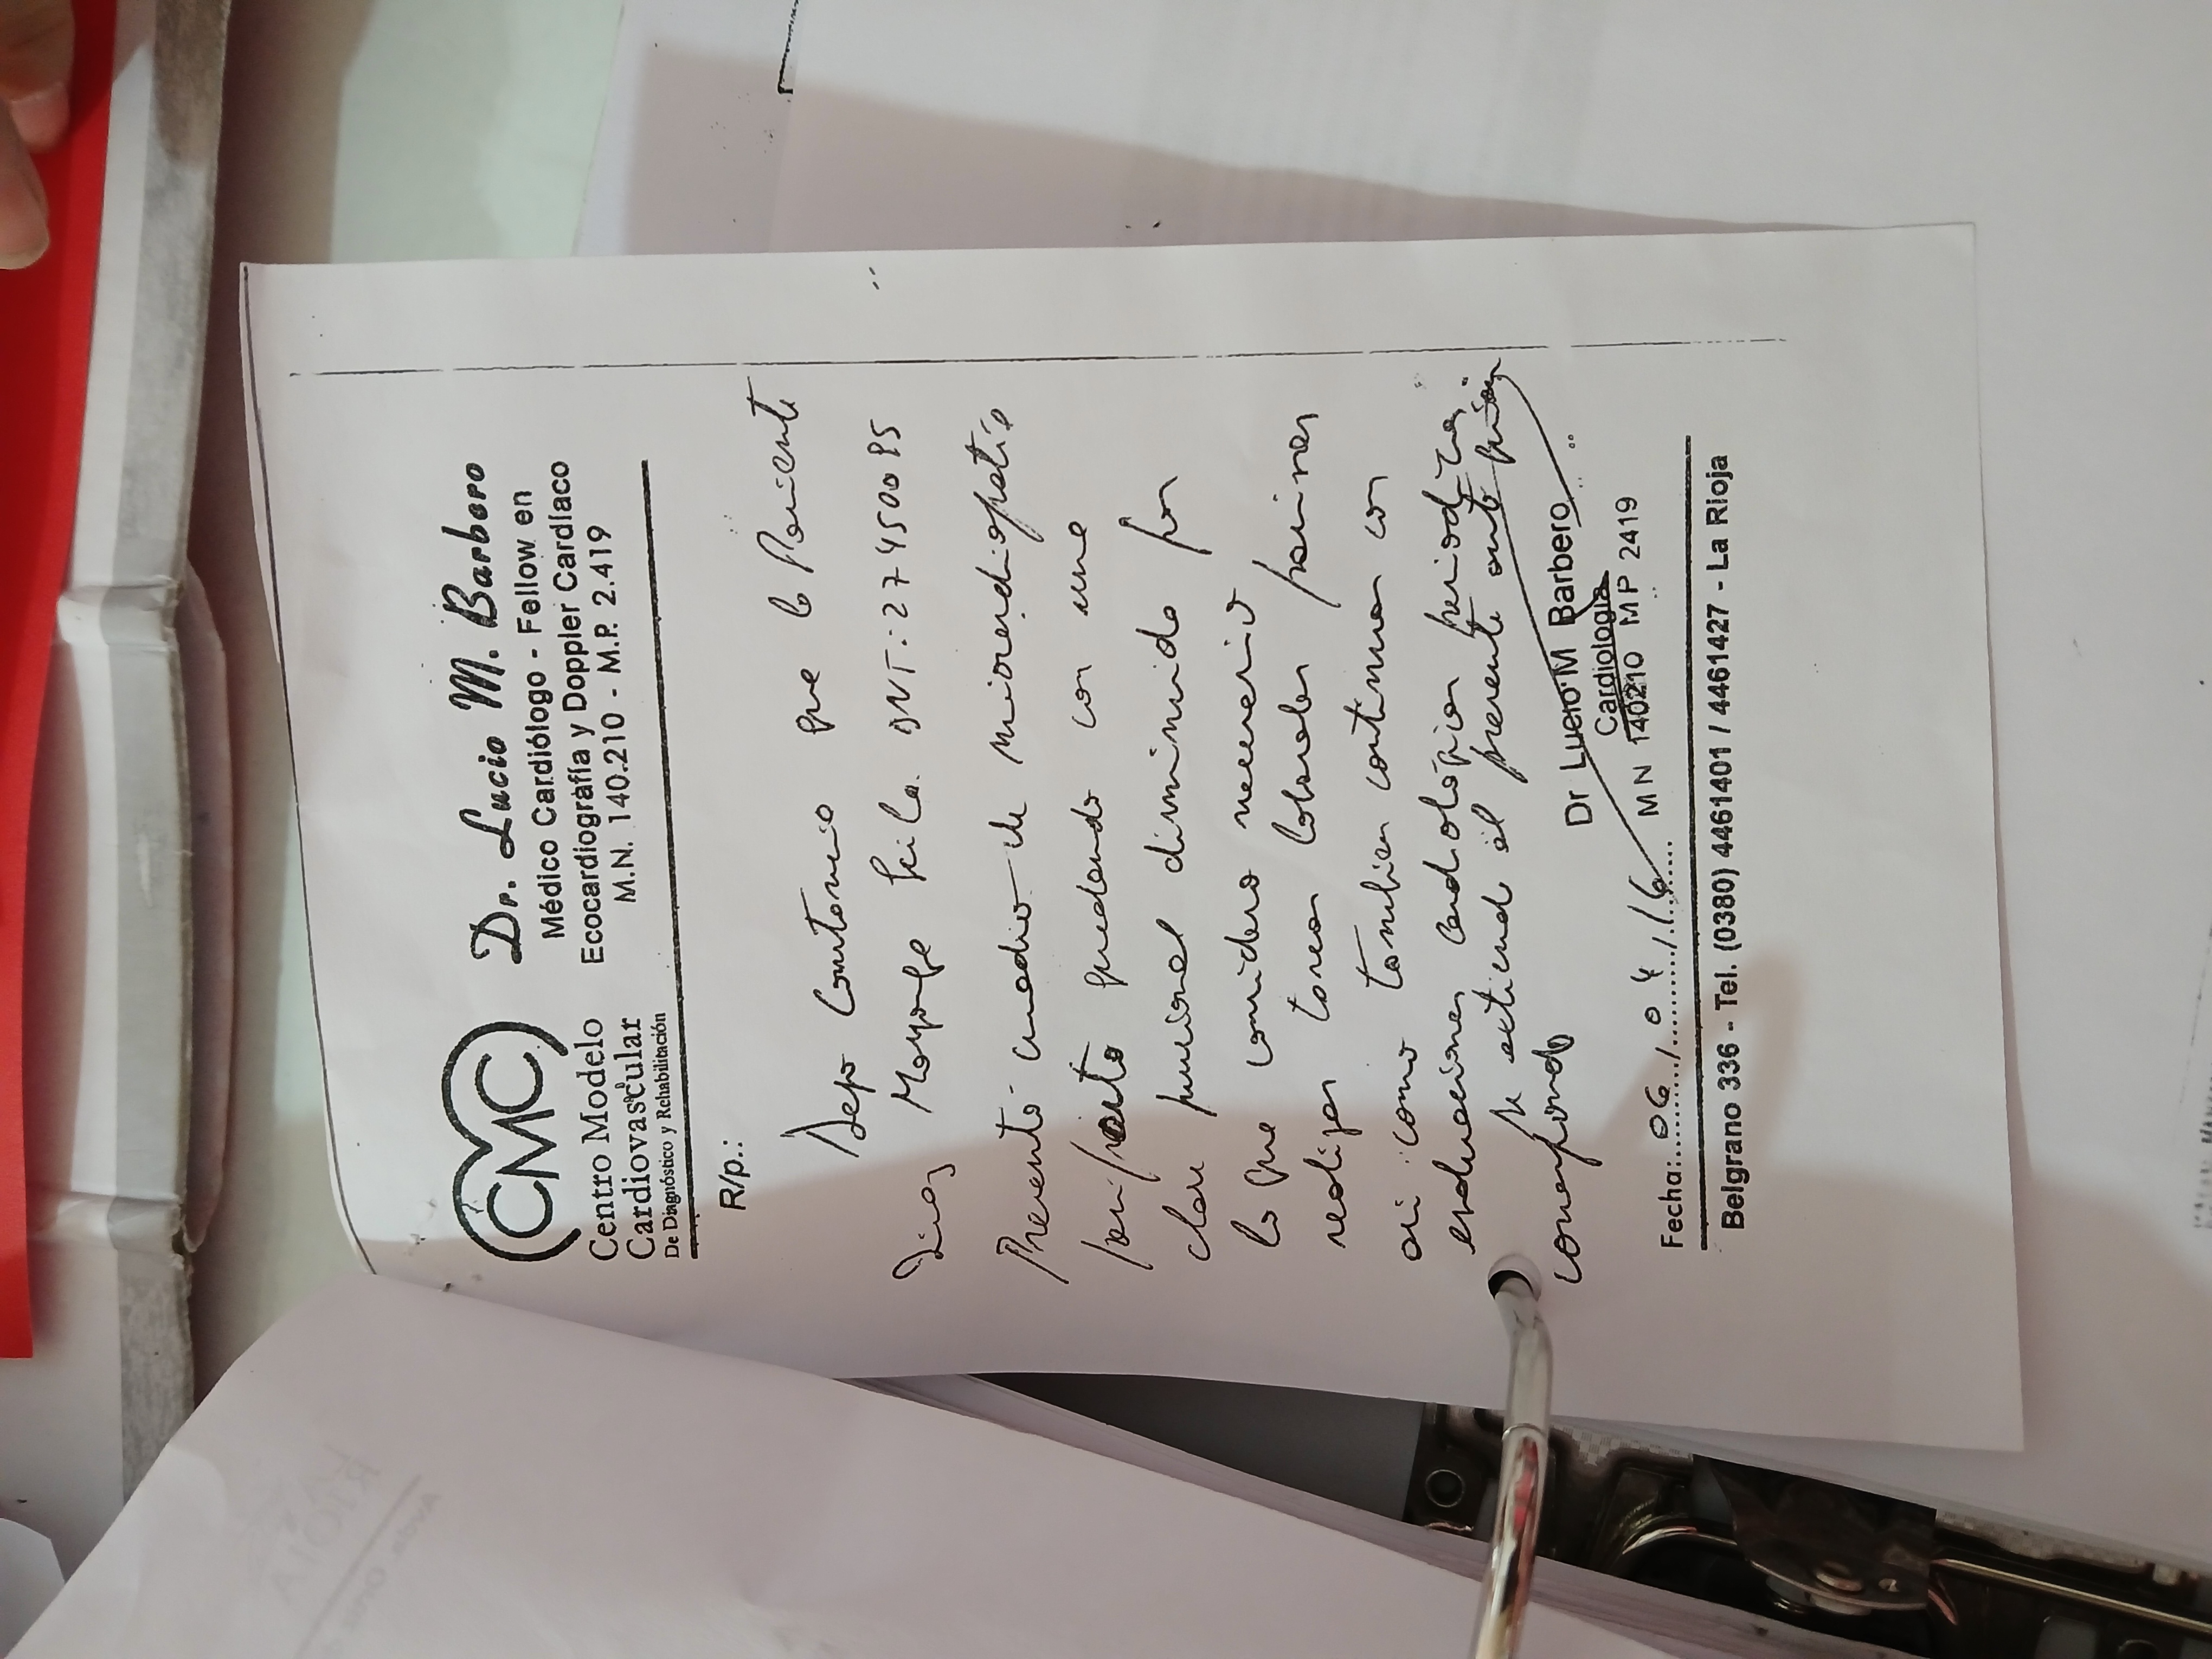 CMC
Centro Modelo
Cardiovascular
De Diagnóstico y Rehabilitación
Dr. Lucio M. Barbero
Médico Cardiólogo - Fellow en
Ecocardiografía y Doppler Cardíaco
M.N. 140.210 - M.P. 2.419
R/p.:
Dejo Constancia que la Paciente
Diaz DNI: 27450085
Presento cuadro de miocardiopatia
quedando con una
clase funcional disminuida por
lo que considero necesario
realizar tareas laborales pasivas
asi como tambien continuar con
evaluaciones cardiologicas periodicas.
Se extiende el presente ante quien
corresponda
Dr Lucio M Barbero
Cardiología
MN 140210 MP 2419
Fecha: 06 / 04 / 16
Belgrano 336 - Tel. (0380) 4461401 / 4461427 - La Rioja